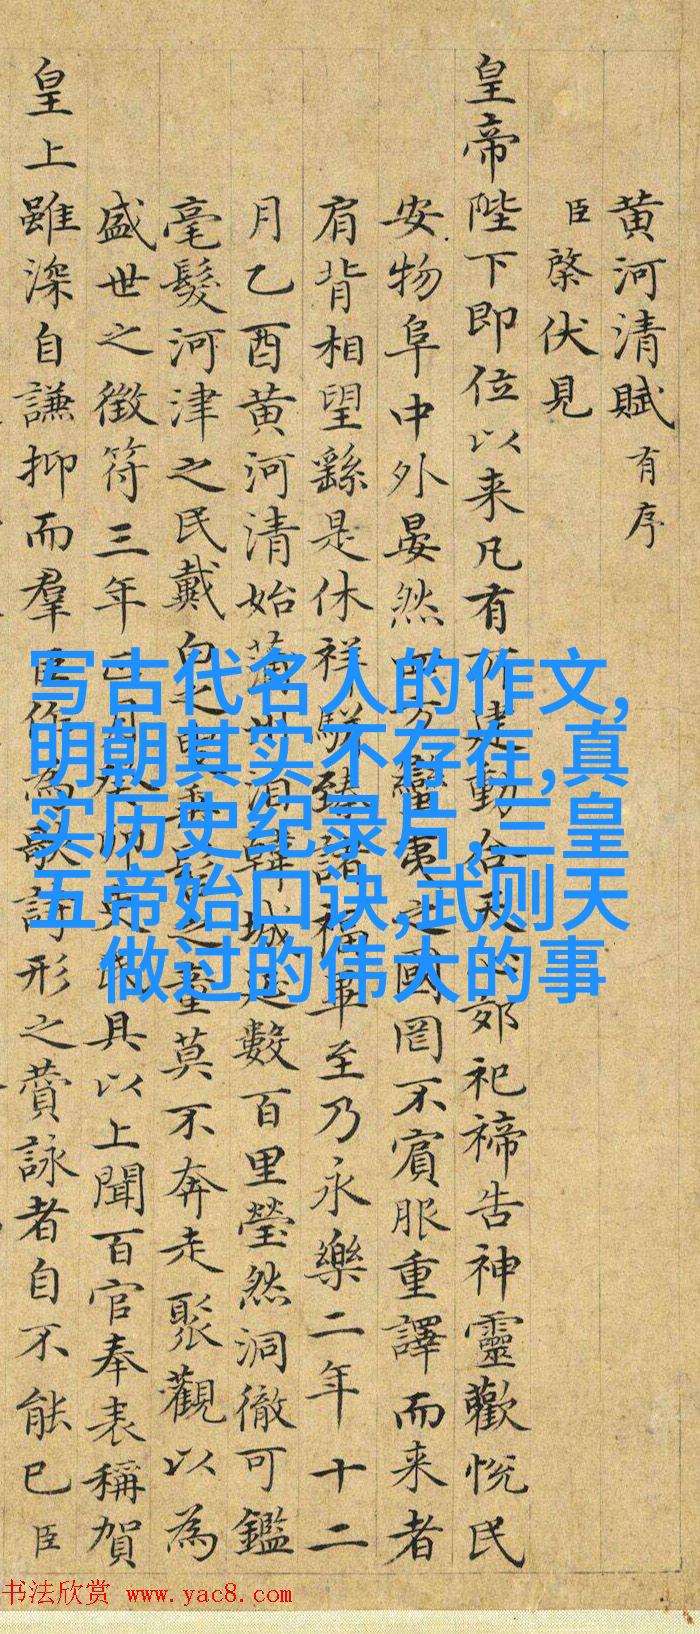 黄河清賦 有序
臣棨伏見
皇帝陛下即位以来凡有所建動合天心郊祀禘告神靈歡悦民
安物阜中外晏然四方蠻夷之國罔不賓服重譯而来者
肩背相望繇是休祥駢臻諸福畢至乃永樂二年十二
月乙酉黄河清始蒲州洎韓城延數百里瑩然洞徹可鑑
毫髮河津之民戴白之叟垂髫之童莫不奔走聚觀以為
盛世之徵符三年民具以上聞百官奉表稱賀
皇上雖深自謙抑而羣臣作為歌詩形之賛詠者自不能已臣
写古代名人的作文,
明朝其实不存在,真
实历史纪录片,三皇
五帝始口诀,武则天
做过的伟大的事
书法欣赏 www.yac8.com